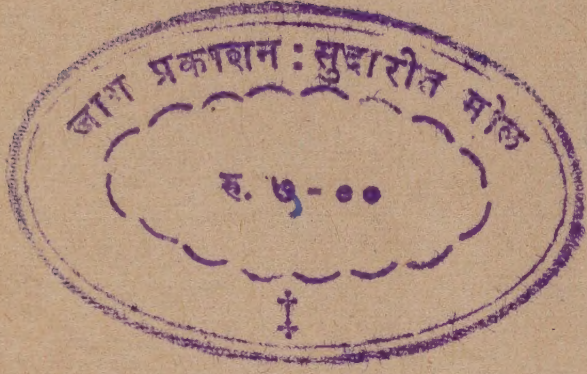 जाग प्रकाशन : सुदारीत मोल
रु. ७-००